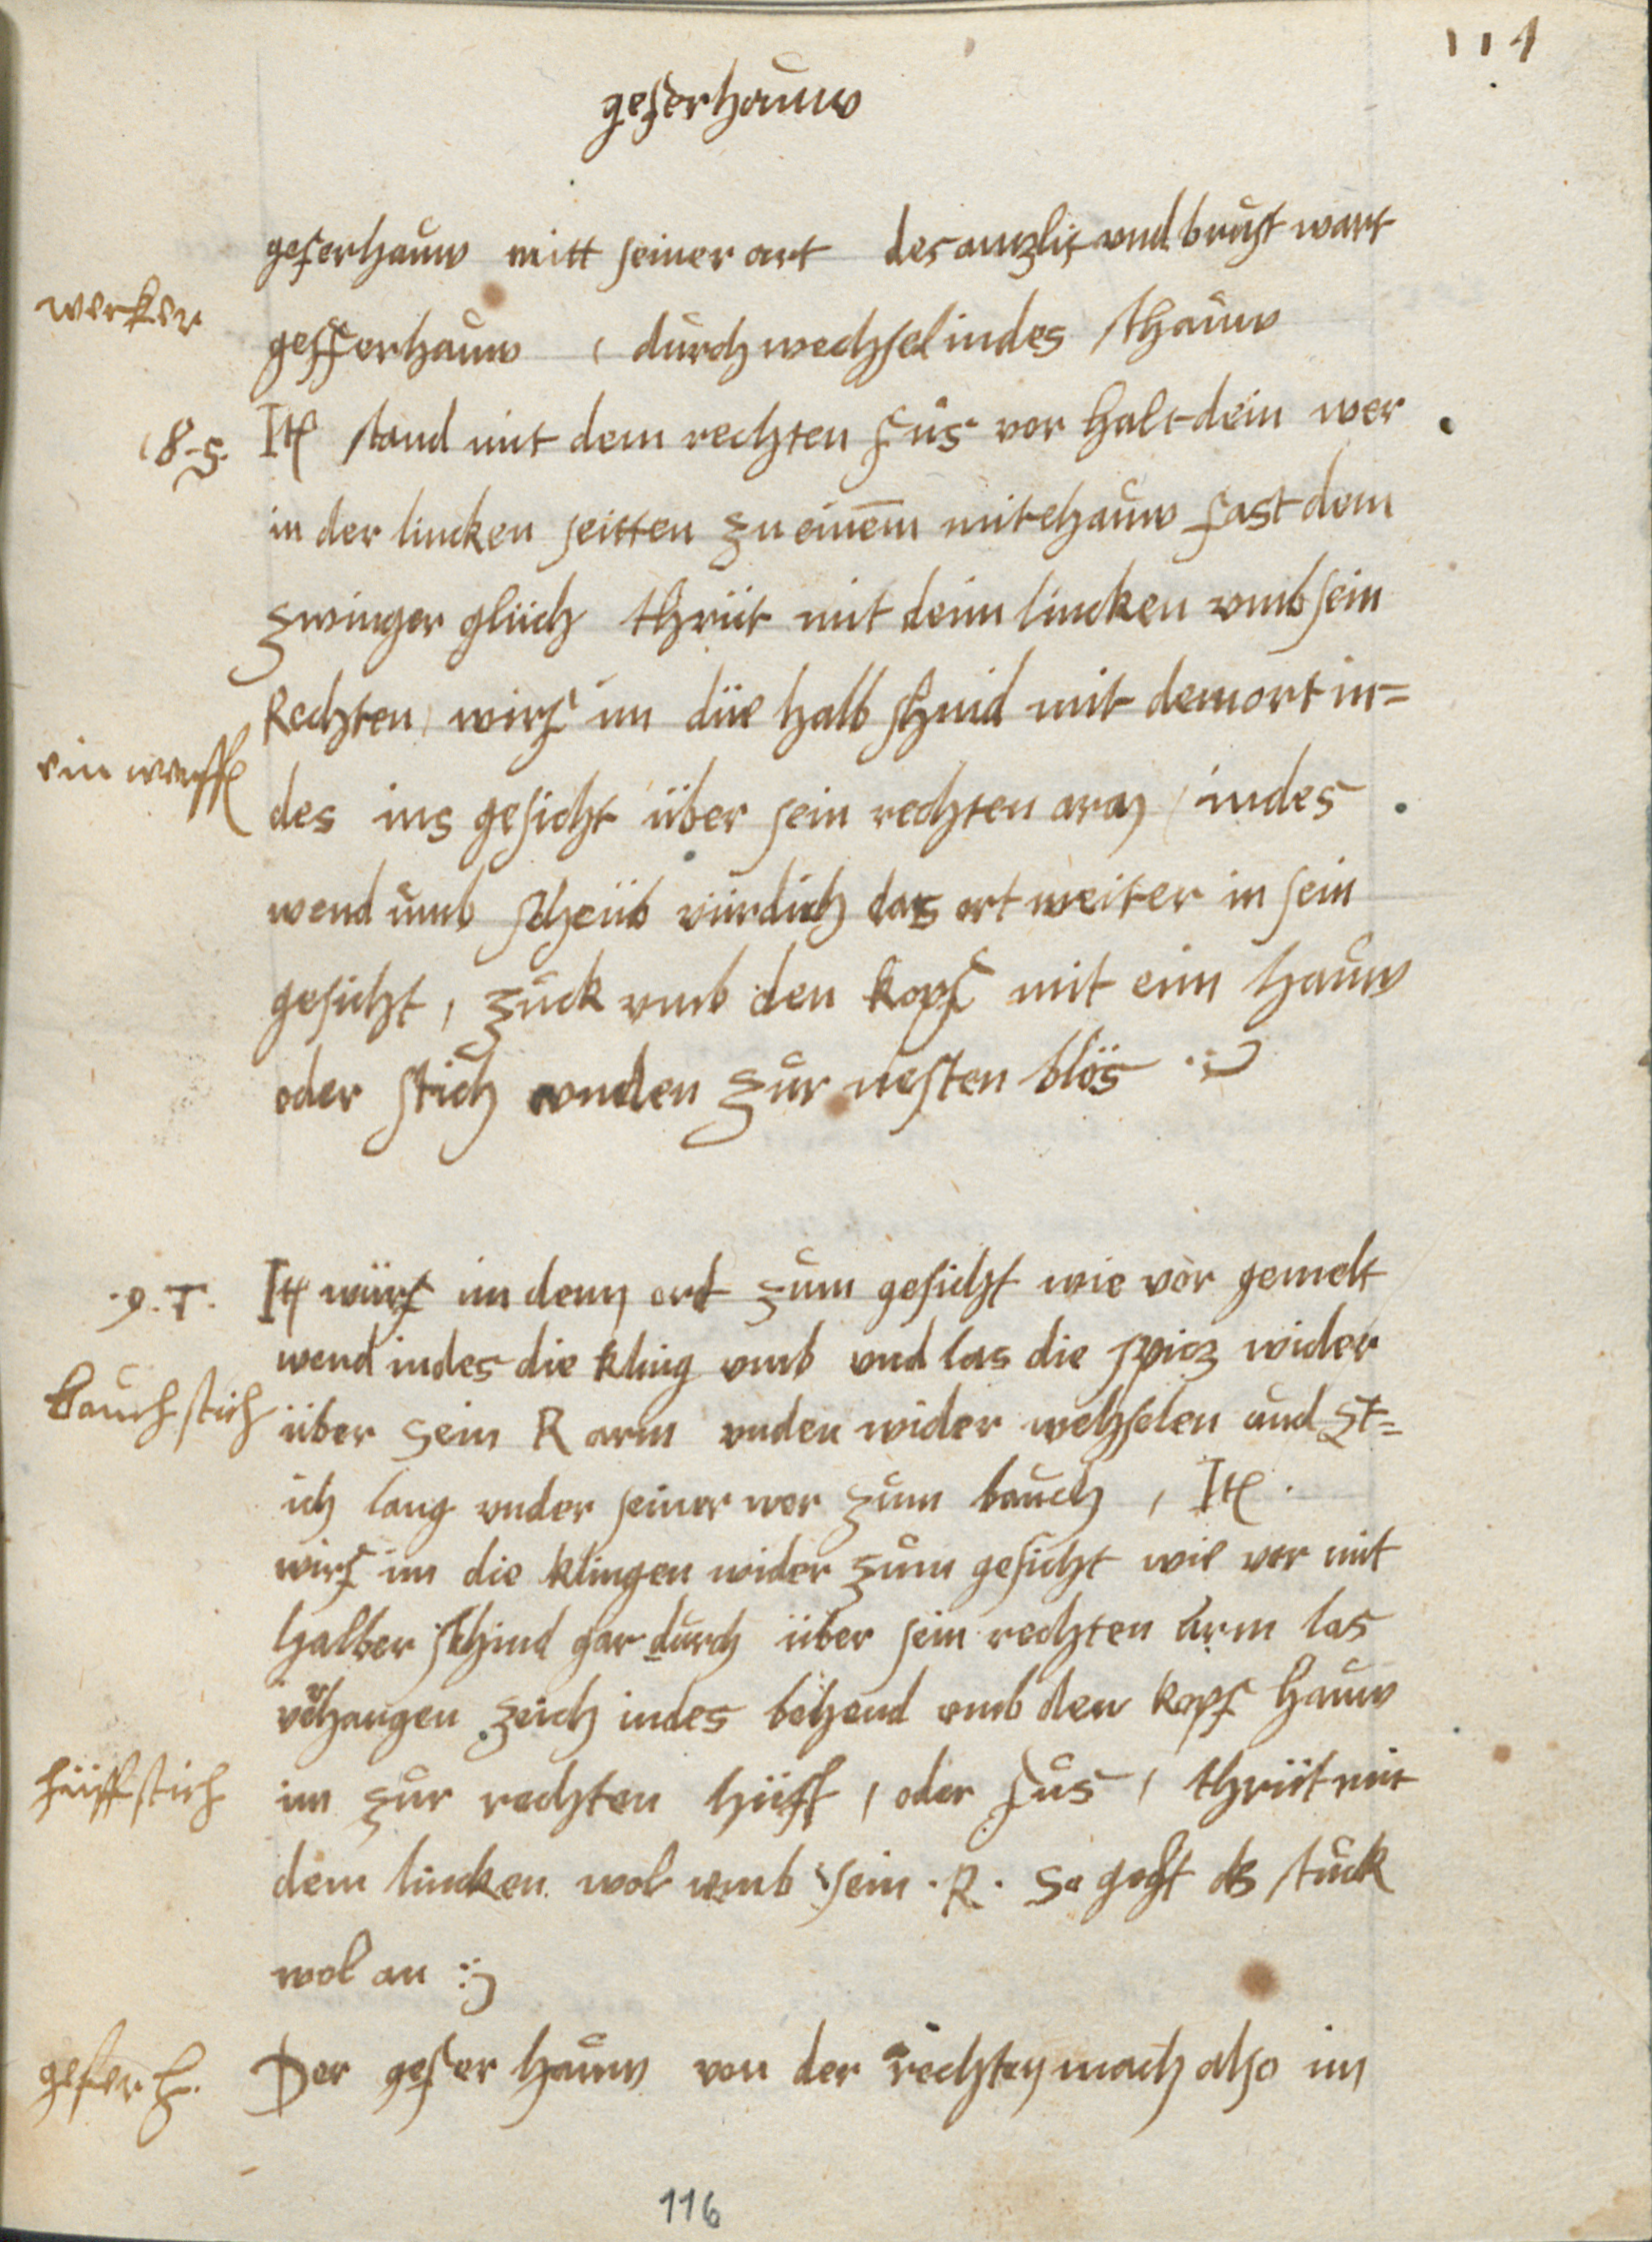 111
geferhauw
geferhauw mitt seiner art des anzlis vnd brust wart
werker
gefferhauw , durchwechsel indes sthauw
8-s.
Itē stand mit dem rechten fůs vor halt dein wer
in der lincken seitten zu einem mitelhauw fast dem
zwinger glüich thrüt mit deim lincken vmb sein
Rechten, wirf im düe halb schnid mit dem ort in=
ein wurff
des ins gesicht über sein rechten arm, indes
wend umb scheüb vürdich das ort weiter in sein
gesicht, zuck vmb den kopf mit eim hauw
oder stich vnden zůr nesten blös
.9.T.
Itē würf im denn ort zům gesicht wie vor gemelt
wend indes die kling vmb vnd las die spicz wider
bauchstich
über sein R arm vnden wider wechslen und st=
ich lang vnder seiner wer zům bauch , Itē .
wirf im die klingen wider zům gesicht wie vor mit
halber schnid gar durch über sein rechten arm las
verhangen zeich indes behend vmb den kopf hauw
hüiff stich
im zůr rechten hüff , oder fůs , thrüt mit
dem lincken wol vmb sein .R. so geht ds stuck
wol an
gefer h.
Der gefer hauw von der rechten mach also im
116